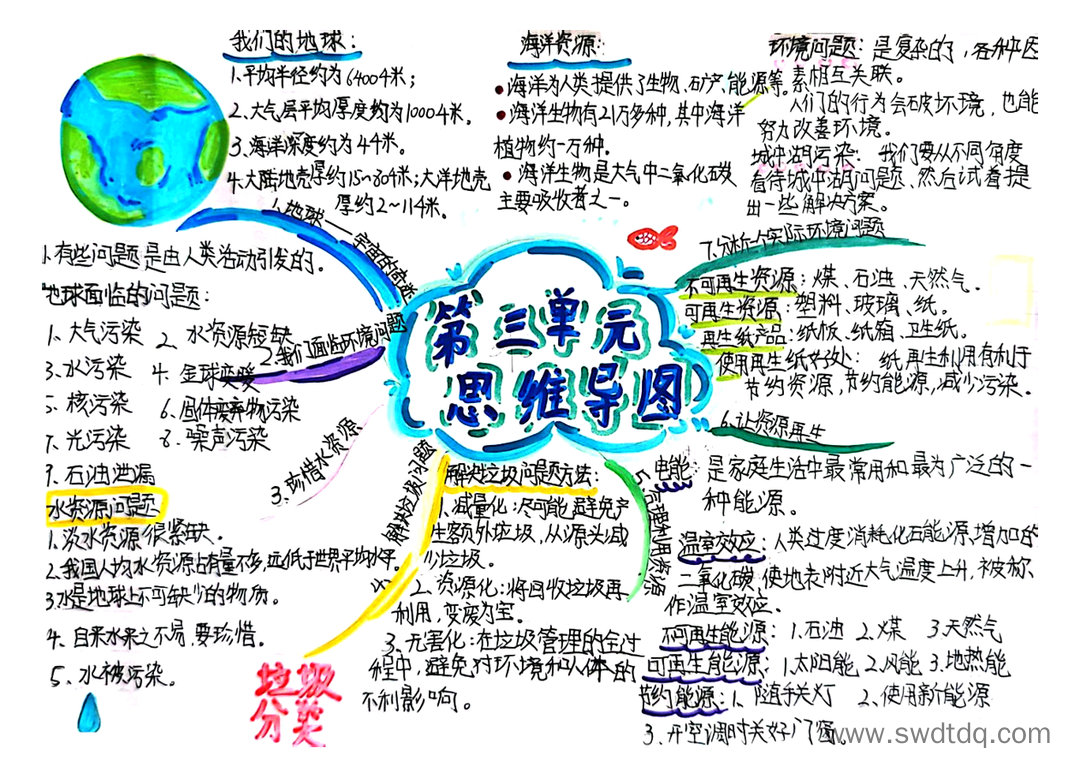 我们的地球：
1.平均半径约为6400千米；
2.大气层平均厚度约为1000千米。
3.海洋深度约为4千米。
4.大陆地壳厚约15～80千米；大洋地壳
厚约2～11千米。
1.地球——宇宙的奇迹
海洋资源：
海洋为人类提供了生物、矿产、能源等。
海洋生物有21万多种，其中海洋
植物约一万种。
海洋生物是大气中二氧化碳
主要吸收者之一。
环境问题：是复杂的，各种因
素相互关联。
人们的行为会破坏环境，也能
努力改善环境。
城中湖污染：我们要从不同角度
看待城中湖问题、然后试着提
出一些解决方案。
7.分析一个实际环境问题
1.有些问题是由人类活动引发的。
地球面临的问题：
1.大气污染 2.水资源短缺
3.水污染 4.全球变暖
5.核污染 6.固体废弃物污染
7.光污染 8.噪声污染
9.石油泄漏
2.我们面临环境问题
第三单元
思维导图
不可再生资源：煤、石油、天然气。
可再生资源：塑料、玻璃、纸。
再生纸产品：纸板、纸箱、卫生纸。
使用再生纸好处：纸再生利用有利于
节约资源，节约能源，减少污染。
6.让资源再生
3.珍惜水资源
水资源问题
1.淡水资源很紧缺。
2.我国人均水资源占有量不多，远低于世界平均水平。
3.水是地球上不可缺少的物质。
4.自来水来之不易，要珍惜。
5.水被污染。
解决垃圾问题
垃圾
分类
解决垃圾问题方法：
1.减量化：尽可能避免产
生额外垃圾，从源头减
少垃圾。
2.资源化：将回收垃圾再
利用，变废为宝。
3.无害化：在垃圾管理的全过
程中，避免对环境和人体的
不利影响。
5.合理利用资源
电能：是家庭生活中最常用和最为广泛的一
种能源。
温室效应：人类过度消耗化石能源，增加的
二氧化碳，使地表附近大气温度上升，被称
作温室效应。
不可再生能源：1.石油 2.煤 3.天然气
可再生能源：1.太阳能 2.风能 3.地热能
节约能源：1.随手关灯 2.使用新能源
3.开空调时关好门窗。
www.swdtdq.com